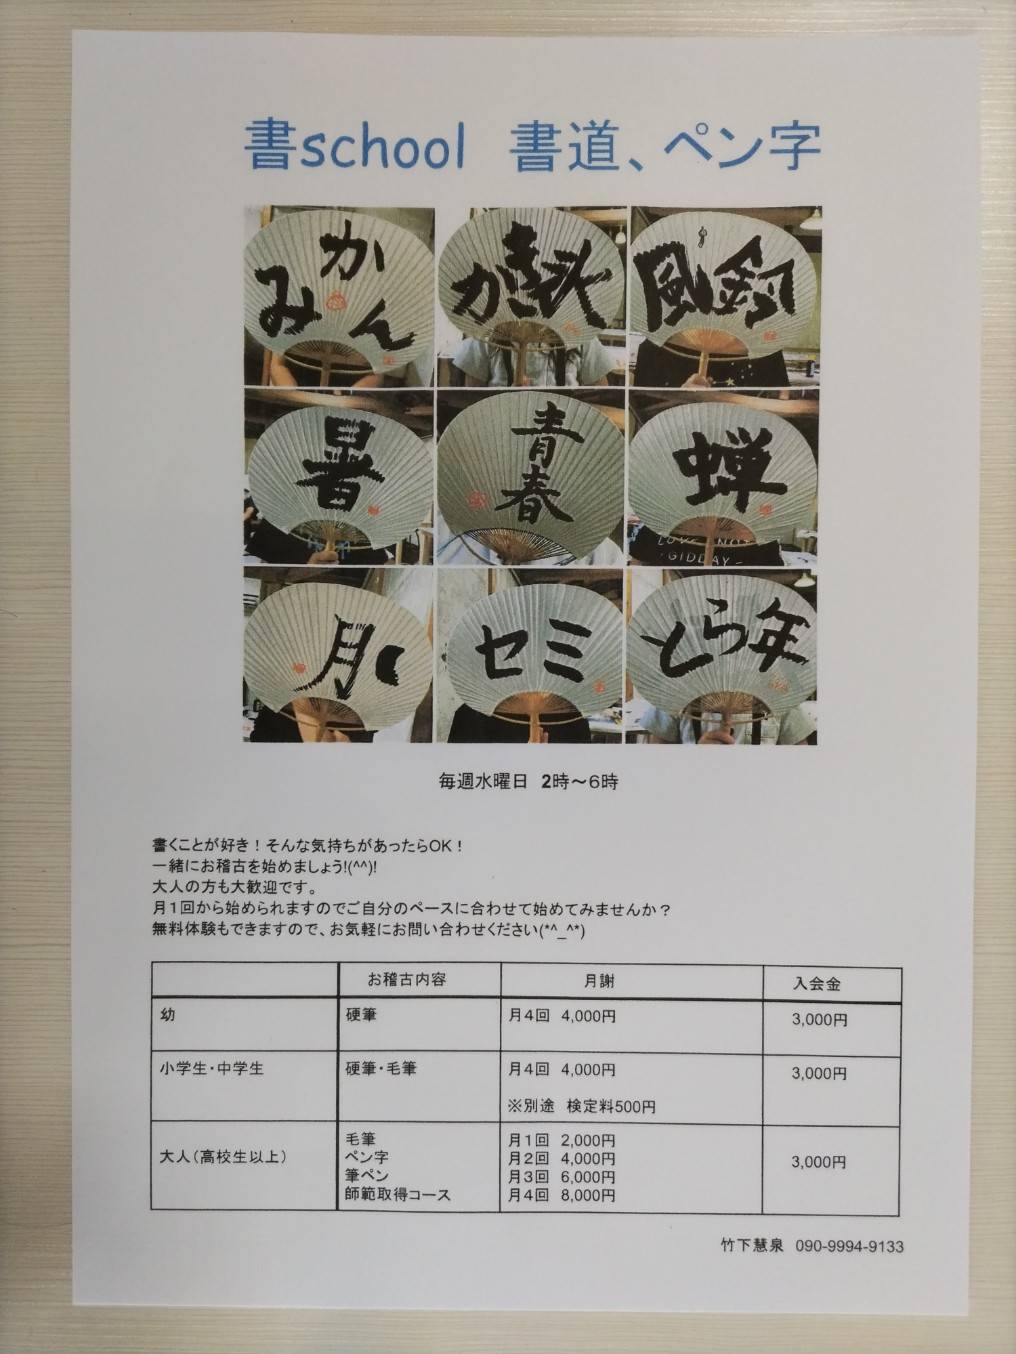 書school 書道、ペン字
かみん
かき氷
風鈴
暑
青春
蝉
セミ
とら年
GIDDAY
毎週水曜日 2時～6時
書くことが好き！そんな気持ちがあったらOK！
一緒にお稽古を始めましょう!(^^)!
大人の方も大歓迎です。
月１回から始められますのでご自分のペースに合わせて始めてみませんか？
無料体験もできますので、お気軽にお問い合わせください(*^_^*)
お稽古内容 月謝 入会金
幼 硬筆 月４回 4,000円 3,000円
小学生・中学生 硬筆・毛筆 月４回 4,000円 3,000円
※別途 検定料500円
大人（高校生以上） 3,000円
毛筆 月１回 2,000円
ペン字 月２回 4,000円
筆ペン 月３回 6,000円
師範取得コース 月４回 8,000円
竹下慧泉 090-9994-9133